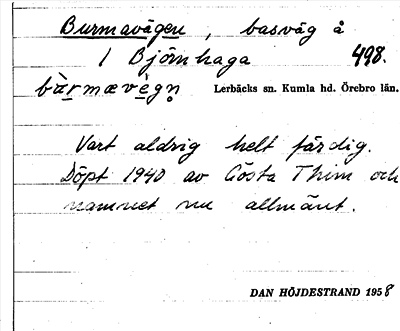 Burmavägen, basväg å
1 Björnhaga 498.
Lerbäcks sn. Kumla hd. Örebro län.
Vart aldrig helt färdig.
Döpt 1940 av Gösta Thim och
namnet nu allmänt.
DAN HÖJDESTRAND 1958